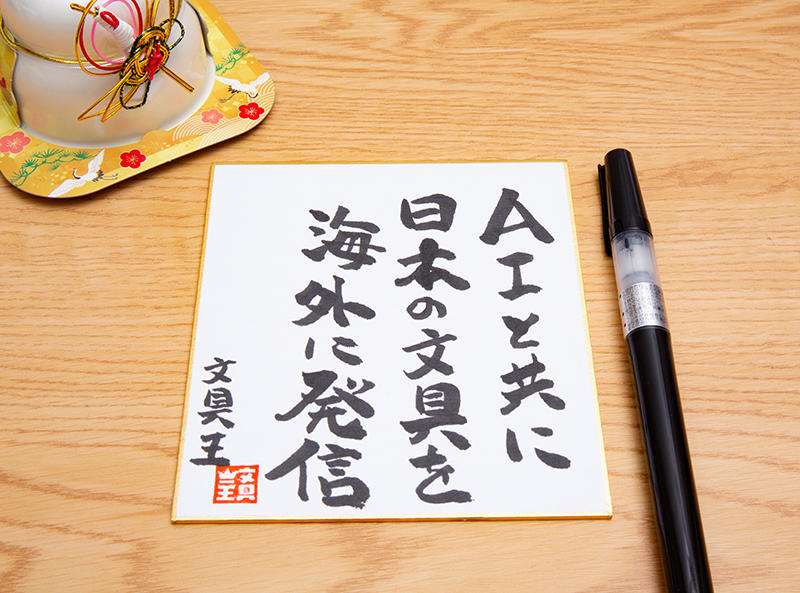 AIと共に
日本の文具を
海外に発信
文具王
文具王